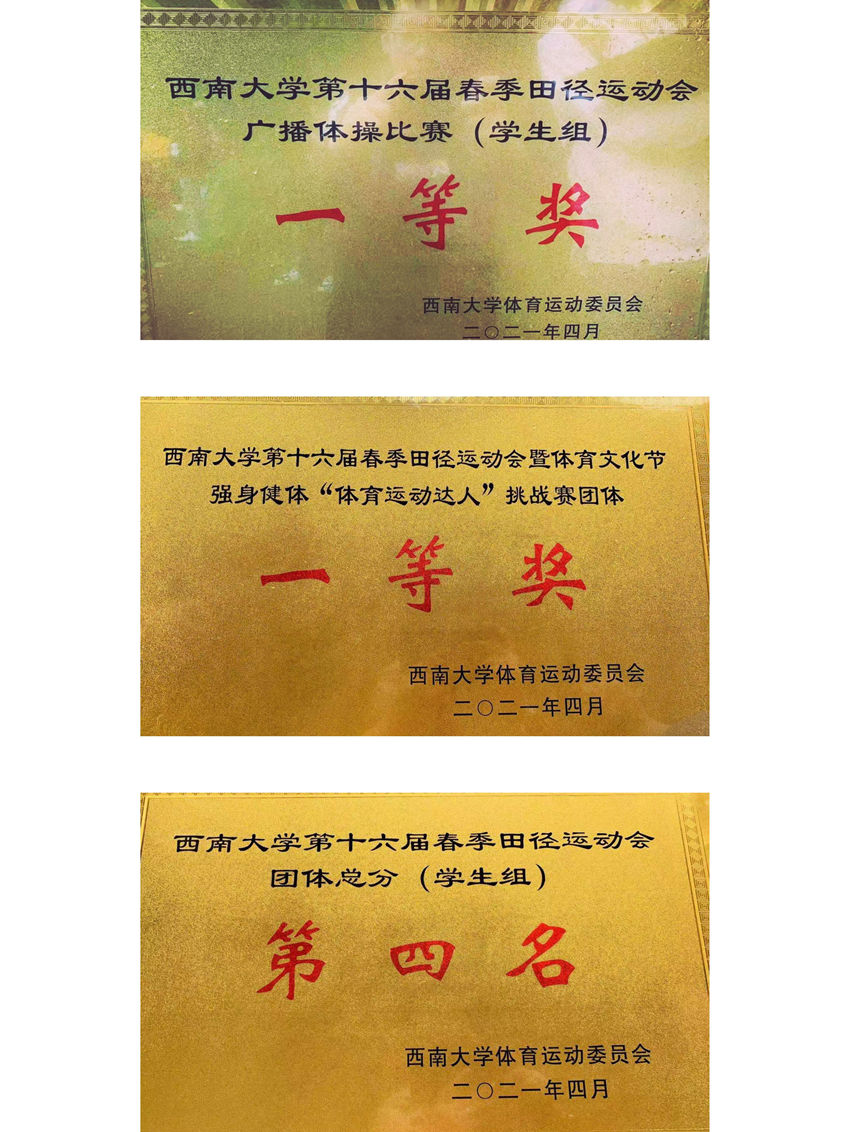 西南大学第十六届春季田径运动会
广播体操比赛（学生组）
一等奖
西南大学体育运动委员会
二〇二一年四月
西南大学第十六届春季田径运动会暨体育文化节
强身健体“体育运动达人”挑战赛团体
一等奖
西南大学体育运动委员会
二〇二一年四月
西南大学第十六届春季田径运动会
团体总分（学生组）
第四名
西南大学体育运动委员会
二〇二一年四月